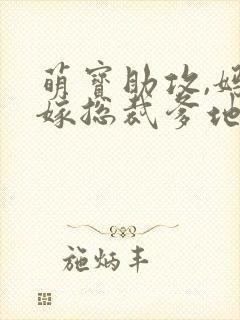 萌寶助攻,媽
嫁總裁爹地
施炳丰